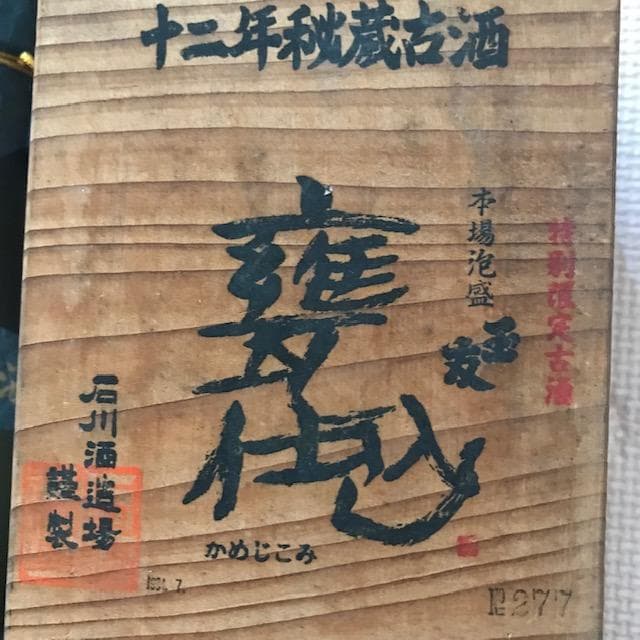 十二年秘蔵古酒
特別限定古酒
本場泡盛
玉友
甕仕込
かめじこみ
石川酒造場
謹製
277